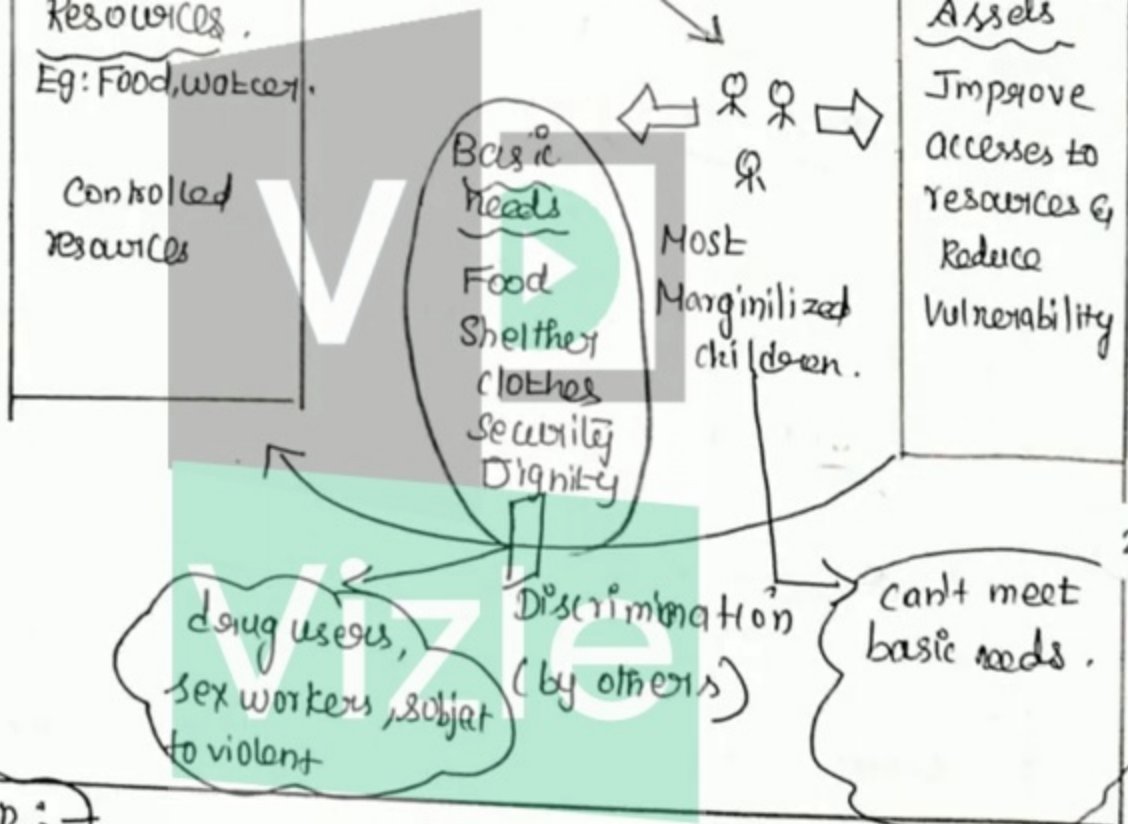 Resources.
Eg: Food, watcer.
Controlled
resources
Basic
needs
Food
Shelther
Clothes
Security
Dignity
Most
Marginilized
children.
Assets
Improve
accesses to
resources &
Reduce
Vulnerability
drug users,
sex workers, subjat
to violent
Discrimination
(by others)
can't meet
basic needs.
V
Vizle